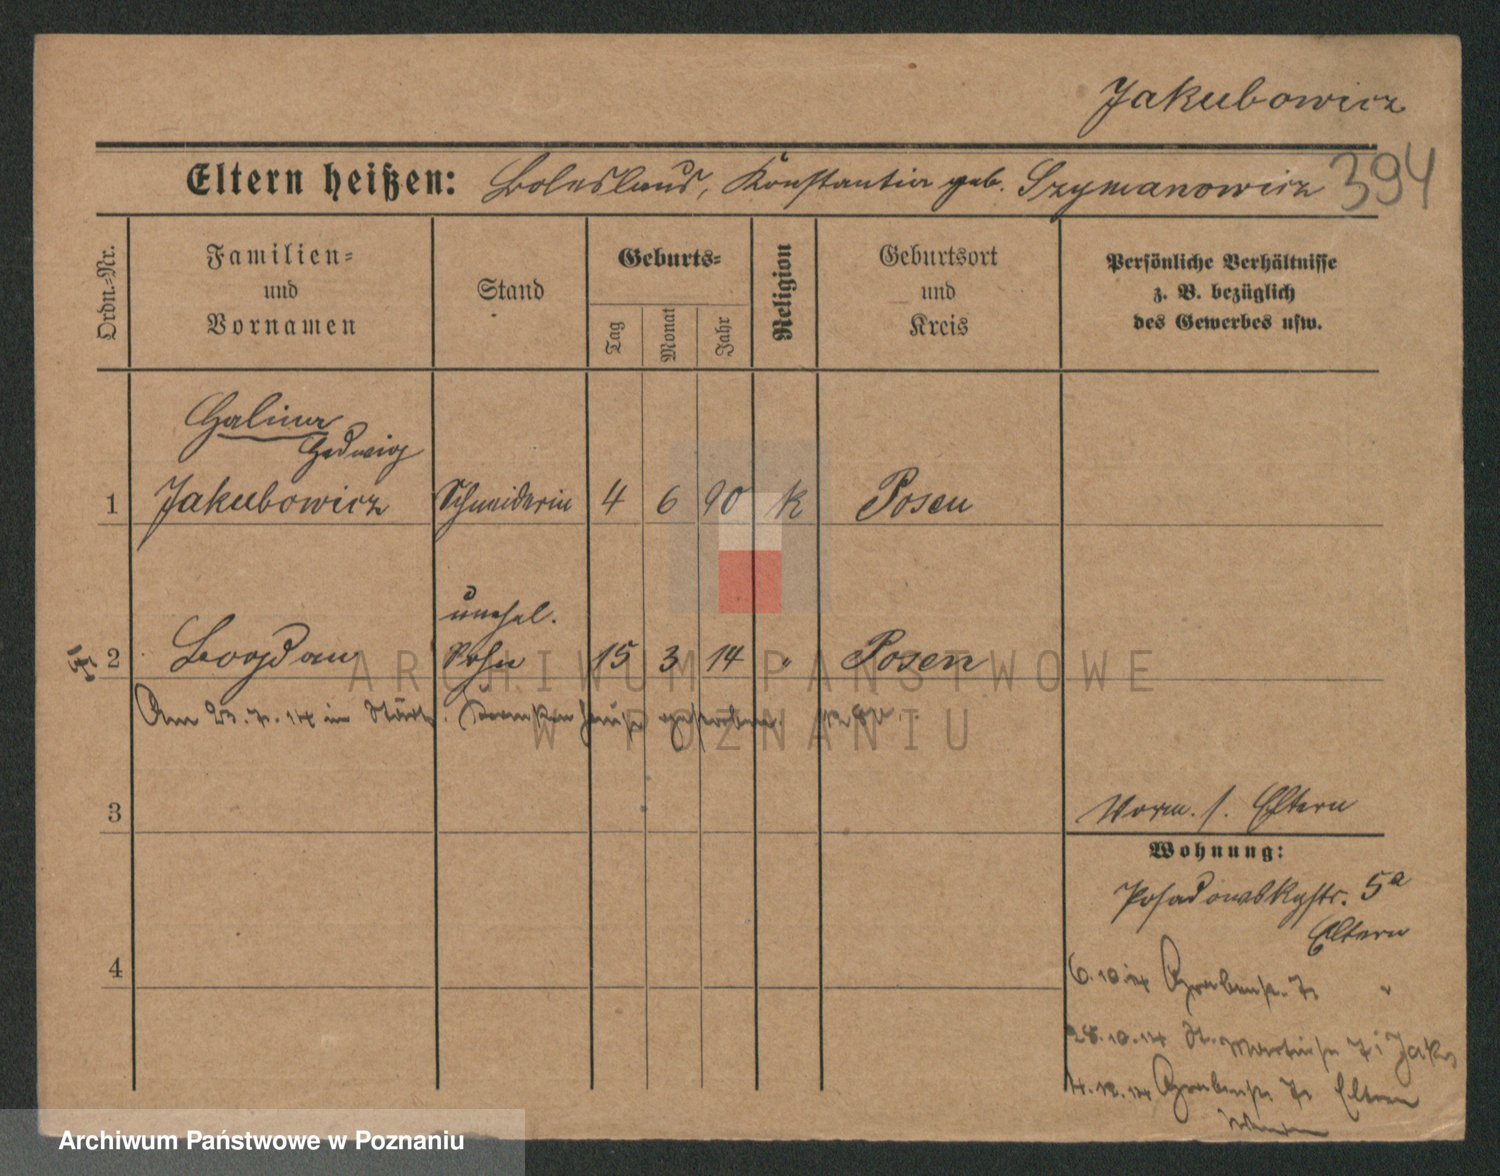 Jakubowicz
Eltern heißen: Boleslaus, Konstantia geb. Szymanowicz 394
Ordn.-Nr.
Familien-
und
Vornamen
Stand
Geburts-
Tag
Monat
Jahr
Religion
Geburtsort
und
Kreis
Persönliche Verhältnisse
z. B. bezüglich
des Gewerbes usw.
Halina
Hedwig
1 Jakubowicz Schneiderin 4 6 90 k Posen
unehel.
2 Bogdan Sohn 15 3 14 " Posen
Am 23.7.14 im Städt. Krankenhause gestorben.
3 Vorm. s. Eltern
Wohnung:
Posadowskystr. 5a
Eltern
4
6.10.14 Grabenstr. 7 "
28.10.14 St. Martinstr. 7
4.12.14 Grabenstr. 7 Eltern
ARCHIWUM PAŃSTWOWE
W POZNANIU
Archiwum Państwowe w Poznaniu